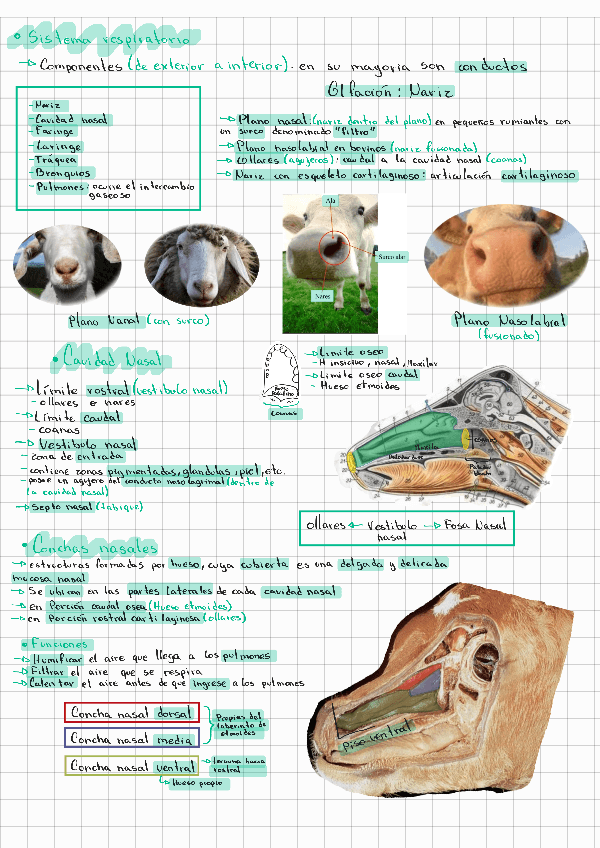 • Sistema respiratorio
→ Componentes (de exterior a interior). en su mayoria son conductos
- Nariz
- Cavidad nasal
- Faringe
- Laringe
- Tráquea
- Bronquios
- Pulmones: ocurre el intercambio
gaseoso
Olfación: Nariz
→ Plano nasal: (nariz dentro del plano) en pequeños rumiantes con
un surco denominado "filtro"
→ Plano nasolabial en bovinos (nariz fusionada)
→ Ollares (agujeros): caudal a la cavidad nasal (coanas)
→ Nariz con esqueleto cartilaginoso: articulación cartilaginoso
Ala
Surco alar
Nares
Plano Nasal (con surco)
Plano Nasolabial
(fusionado)
• Cavidad Nasal
→ Límite rostral (vestibulo nasal)
- ollares o nares
→ Límite caudal
- coanas
→ Vestibulo nasal
- zona de entrada
- contiene zonas pigmentadas, glandulas, piel, etc.
- posee un agujero del conducto nasolagrimal (dentro de
la cavidad nasal)
→ Septo nasal (tabique)
coanas
→ Limite oseo
- H insicivo, nasal, Maxilar
→ Limite oseo caudal
- Hueso etmoides
Maxila
coanas
ollares ← Vestibulo → Fosa Nasal
nasal
• Conchas nasales
→ estructuras formadas por hueso, cuya cubierta es una delgada y delicada
mucosa nasal
→ Se ubican en las partes laterales de cada cavidad nasal
→ en Porción caudal osea (Hueso etmoides)
→ en Porción rostral cartilaginosa (ollares)
• Funciones
→ Humificar el aire que llega a los pulmones
→ Filtrar el aire que se respira
→ Calentar el aire antes de que ingrese a los pulmones
Concha nasal dorsal
Concha nasal media
Propias del
laberinto de
etmoides
Concha nasal ventral
→ Hueso propio
rostral
Piso ventral